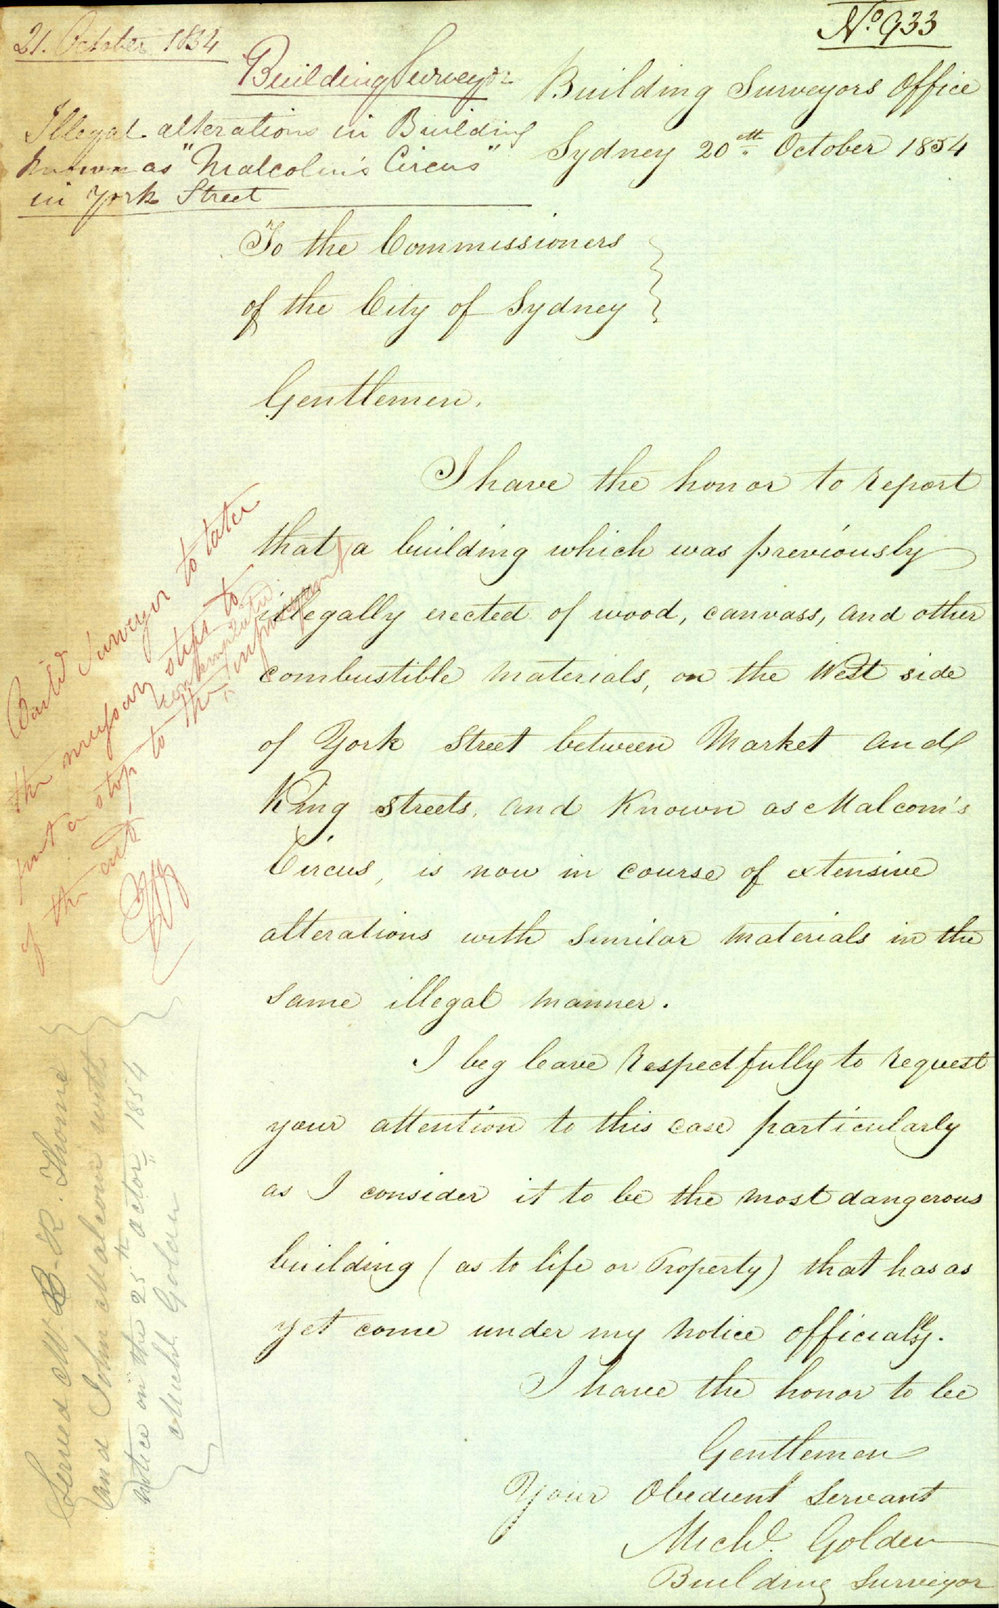 No 933
21. October 1854
Building Surveyor
Illegal alterations in Building
known as "Malcolm's Circus"
in York Street
Building Surveyors Office
Sydney 20th October 1854
To the Commissioners
of the City of Sydney
Gentlemen.
I have the honor to report
that a building which was previously
illegally erected of wood, canvass, and other
combustible materials, on the West side
of York Street between Market and
King Streets, and Known as Malcom's
Circus, is now in course of extensive
alterations with similar materials in the
same illegal manner.
I beg leave respectfully to request
your attention to this case particularly
as I consider it to be the most dangerous
building (as to life or Property) that has as
yet come under my notice officially.
I have the honor to be
Gentlemen
Your Obedient Servant
Michl. Golden
Building Surveyor
Build Surveyor to take
the necessary steps to
put a stop to the contemplated
infringement
of the act
Served Mr B. R. Thorne
and John Malcom with
notice on the 25th Octor 1854
Michl Golden